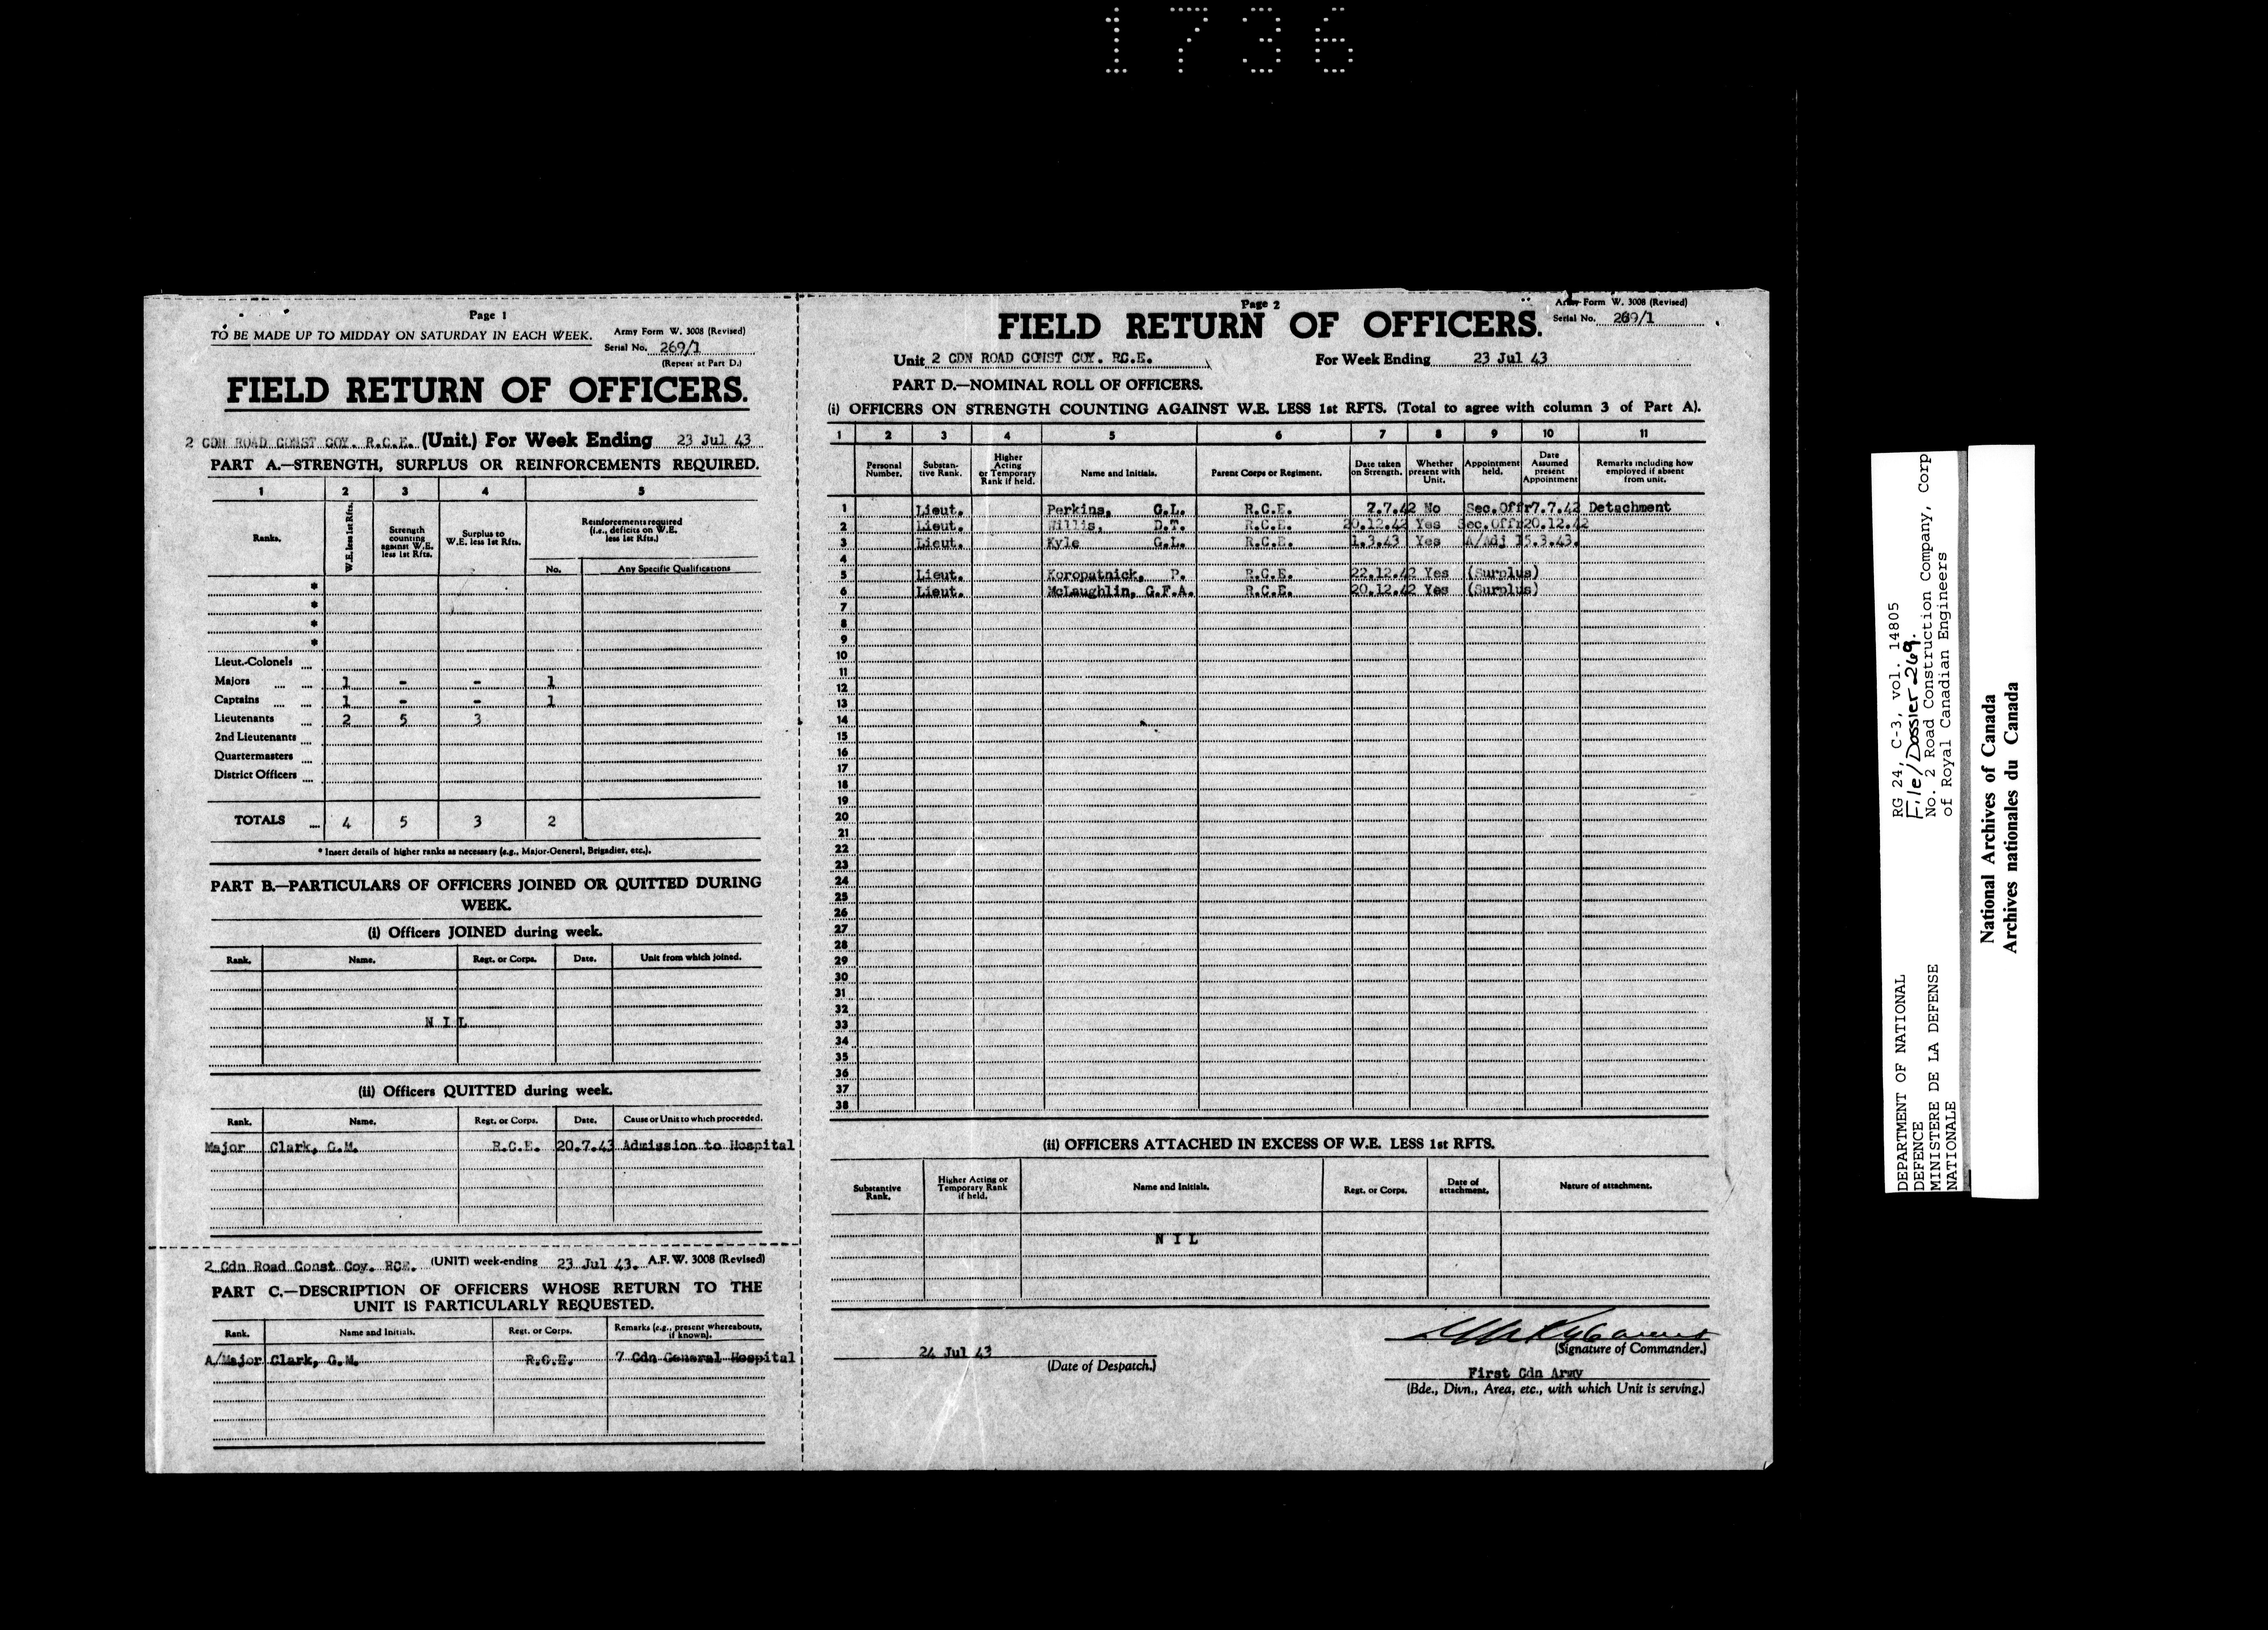 1736
Page 1
TO BE MADE UP TO MIDDAY ON SATURDAY IN EACH WEEK.
Army Form W. 3008 (Revised)
Serial No. 269/1
(Repeat at Part D.)
FIELD RETURN OF OFFICERS.
2 CDN ROAD CONST COY. R.C.E. (Unit.) For Week Ending 23 Jul 43
PART A.—STRENGTH, SURPLUS OR REINFORCEMENTS REQUIRED.
1 2 3 4 5
Ranks. W.E. less 1st Rfts. Strength counting against W.E. less 1st Rfts. Surplus to W.E. less 1st Rfts. Reinforcements required (i.e., deficits on W.E. less 1st Rfts.)
No. Any Specific Qualifications
*
*
*
*
Lieut.-Colonels ...
Majors ... ... 1 - - 1
Captains ... ... 1 - - 1
Lieutenants ... 2 5 3
2nd Lieutenants ...
Quartermasters ...
District Officers ...
TOTALS ... 4 5 3 2
* Insert details of higher ranks as necessary (e.g., Major-General, Brigadier, etc.).
PART B.—PARTICULARS OF OFFICERS JOINED OR QUITTED DURING
WEEK.
(i) Officers JOINED during week.
Rank. Name. Regt. or Corps. Date. Unit from which joined.
N I L
(ii) Officers QUITTED during week.
Rank. Name. Regt. or Corps. Date. Cause or Unit to which proceeded.
Major Clark, G.M. R.C.E. 20.7.43 Admission to Hospital
2 Cdn Road Const Coy. RCE. (UNIT) week-ending 23 Jul 43. A.F.W. 3008 (Revised)
PART C.—DESCRIPTION OF OFFICERS WHOSE RETURN TO THE
UNIT IS PARTICULARLY REQUESTED.
Rank. Name and Initials. Regt. or Corps. Remarks (e.g., present whereabouts, if known).
A/Major Clark, G.M. R.C.E. 7 Cdn General Hospital
Page 2
Army Form W. 3008 (Revised)
Serial No. 269/1
FIELD RETURN OF OFFICERS.
Unit 2 CDN ROAD CONST COY. RC.E. For Week Ending 23 Jul 43
PART D.—NOMINAL ROLL OF OFFICERS.
(i) OFFICERS ON STRENGTH COUNTING AGAINST W.E. LESS 1st RFTS. (Total to agree with column 3 of Part A).
1 2 3 4 5 6 7 8 9 10 11
Personal Number. Substantive Rank. Higher Acting or Temporary Rank if held. Name and Initials. Parent Corps or Regiment. Date taken on Strength. Whether present with Unit. Appointment held. Date Assumed present Appointment Remarks including how employed if absent from unit.
1 Lieut. Perkins, G.L. R.C.E. 7.7.42 No Sec.Offr 7.7.42 Detachment
2 Lieut. Willis, D.T. R.C.E. 20.12.42 Yes Sec.Offr 20.12.42
3 Lieut. Kyle G.L. R.C.E. 1.3.43 Yes A/Adj 15.3.43.
4
5 Lieut. Koropatnick, P. R.C.E. 22.12.42 Yes (Surplus)
6 Lieut. McLaughlin, G.F.A. R.C.E. 20.12.42 Yes (Surplus)
7
8
9
10
11
12
13
14
15
16
17
18
19
20
21
22
23
24
25
26
27
28
29
30
31
32
33
34
35
36
37
38
(ii) OFFICERS ATTACHED IN EXCESS OF W.E. LESS 1st RFTS.
Substantive Rank. Higher Acting or Temporary Rank if held. Name and Initials. Regt. or Corps. Date of attachment. Nature of attachment.
N I L
24 Jul 43
(Date of Despatch.)
(Signature of Commander.)
First Cdn Army
(Bde., Divn., Area, etc., with which Unit is serving.)
DEPARTMENT OF NATIONAL
DEFENCE
MINISTERE DE LA DEFENSE
NATIONALE
RG 24, C-3, vol. 14805
File/Dossier 269.
No. 2 Road Construction Company, Corp
of Royal Canadian Engineers
National Archives of Canada
Archives nationales du Canada